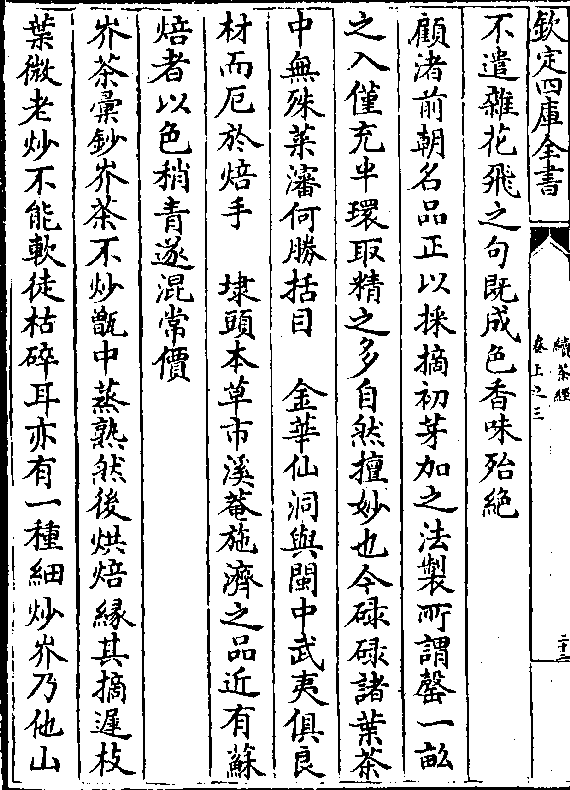 欽定四庫全書
續茶經
卷上之三
二十二
不遣雜花飛之句既成色香味殆絶
顧渚前朝名品正以採摘初芽加之法製所謂罄一畝
之入僅充半環取精之多自然擅妙也今碌碌諸葉茶
中無殊菜瀋何勝括目 金華仙洞與閩中武夷俱良
材而厄於焙手 埭頭本草市溪菴施濟之品近有蘇
焙者以色稍青遂混常價
岕茶彚鈔岕茶不炒甑中蒸熟然後烘焙緣其摘遲枝
葉微老炒不能軟徒枯碎耳亦有一種細炒岕乃他山